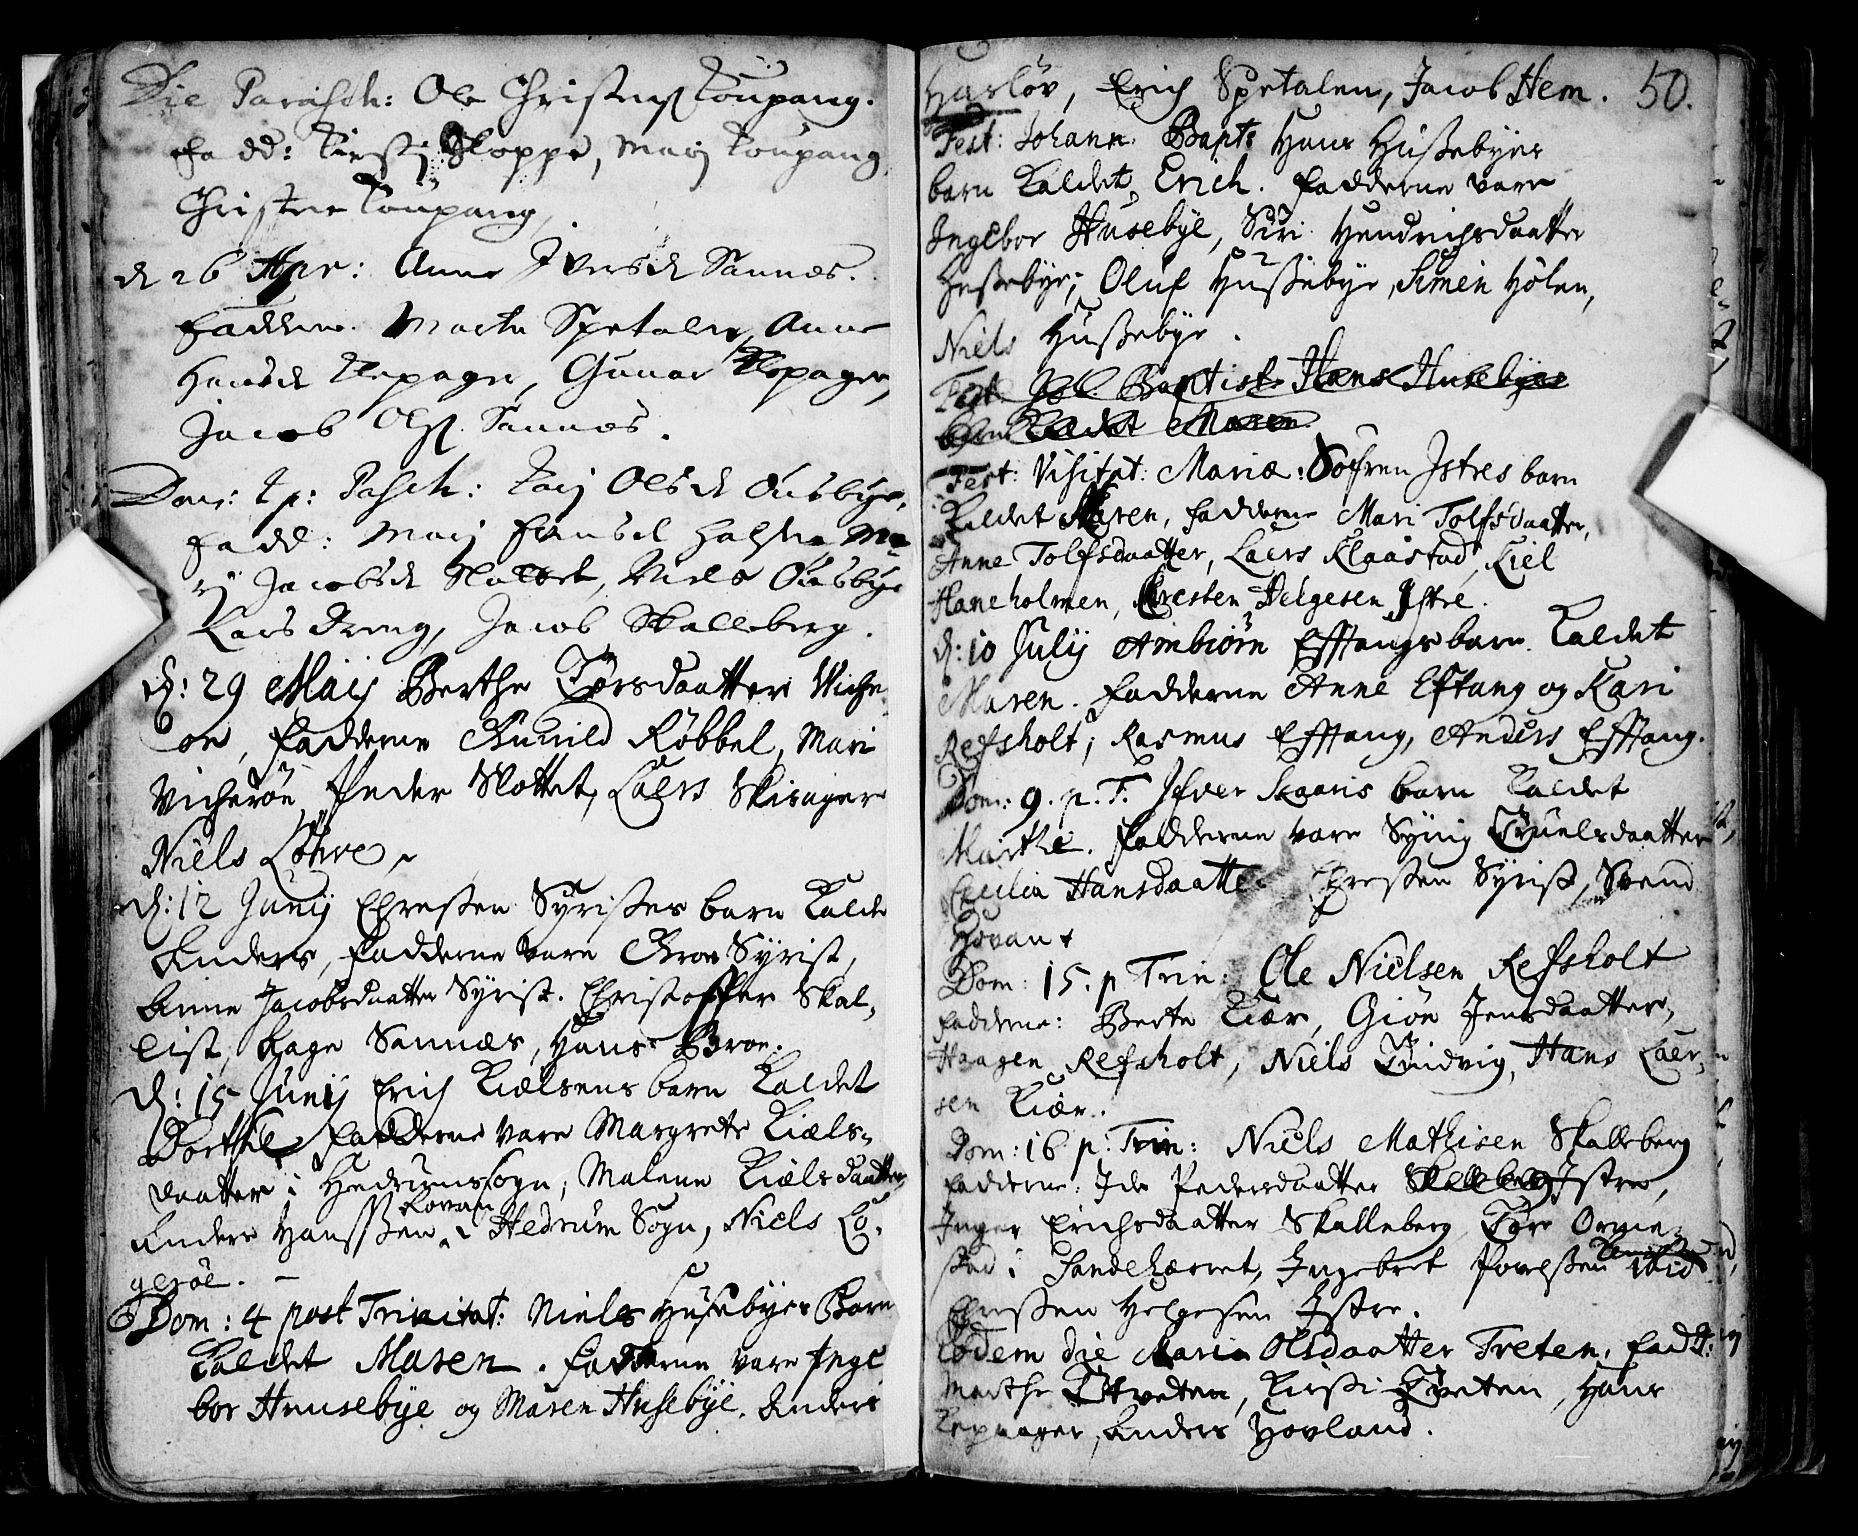 Die Parasch: Ole Christens. Koupang.
fadd: Kirsti Kloppe, Marj Koupang
Christen Koupang,
d 26 Apr: Anne Iversd Sannes.
Faddern. Marte Spetalen, Anne
Hansd Klepager, Gunar Klepager,
Jacob Ols. Sannes.
Dom: 4 p: Pasch: Karj Olsd Ousbye,
fadd: Marj Hansd Halsen Ma-
rj Jacobsd Slottet, Niels Ousbye
Lars Dreng, Jacob Skalleberg.
d: 29 Maij Berthe Torsdaatter Wiche
öe, Fadderne Gunild Röbbel, Mari
Wicheröe, Peder Slottet, Laers Skisager
Niels Löhve,
d: 12 Junij Christen Syristes barn Kaldet
Anders, Fadderne vare Groe Syrist,
Anne Jacobsdaatter Syrist. Christoffer Skal-
list, Aage Sannes, Hans Broe.
d: 15 Junij Erich Kielsens barn Kaldet
Dorthe Fadderne vare Margrete Kiels-
daatter i Hedrums sogn, Malene Kielsdaatter
Anders Hanssen Hovan i Hedrum Sogn, Niels Lö-
geröe. –
Dom: 4 post Trinitat: Niels Husebyes Barn
Kaldet Maren. Fadderne vare Inge
bor Hunsebye og Maren Husebye, Anders
Harlöv, Erich Spetalen, Jacob Hem. 50.
Fest: Johann. Bapt: Hans Hussebyes
barn Kaldet Erich. Fadderne vare
Ingebor Husebye, Siri Hendrichsdaatter
Hussebye, Oluf Hussebye, Simen Hölen,
Niels Hussebye.
Fest. Joh. Baptist. Hans Husebyes
barn Kaldet Maren
Fest: Visitat: Mariæ: Söfren Istres barn
Kaldet Maren, Fadderne Mari Tolfsdaatter,
Anne Tolfsdaatter, Laers Klaastad, Kiel
Haneholmen, Christen Helgesen Istre.
d: 10 Julij Ambiörn Efftangs barn Kaldet
Maren. Fadderne Anne Eftang og Kari
Refsholt, Rasmus Efftang, Anders Efftang.
Dom: 9. p. T. Ifver Skaaris barn Kaldet
Marthe. Fadderne vare Synig Truelsdaatter
Cecilia Hansdaatter Christen Syrist, Svend
Hovan
Dom: 15. p Trin: Ole Nielsen Refsholt
Fadderne: Berte Kiær, Giöe Jensdaatter,
Haagen Refsholt, Niels Tindvig, Hans Laer-
sen Kiær.
Dom: 16 p: Trin: Niels Mathisen Skalleberg
Fadderne: Ide Pedersdaatter Skalleberg Istre,
Inger Erichsdaatter Skalleberg, Tore Ormes-
stad i Sandeherret, Ingebret Povelsen ibid
Christen Helgesen Istre.
Eodem die Maria Olsdaatter Treten, Fadd:
Marthe Tveten, Kirsti Tveten, Hans
Kepaager, Anders Hovland.